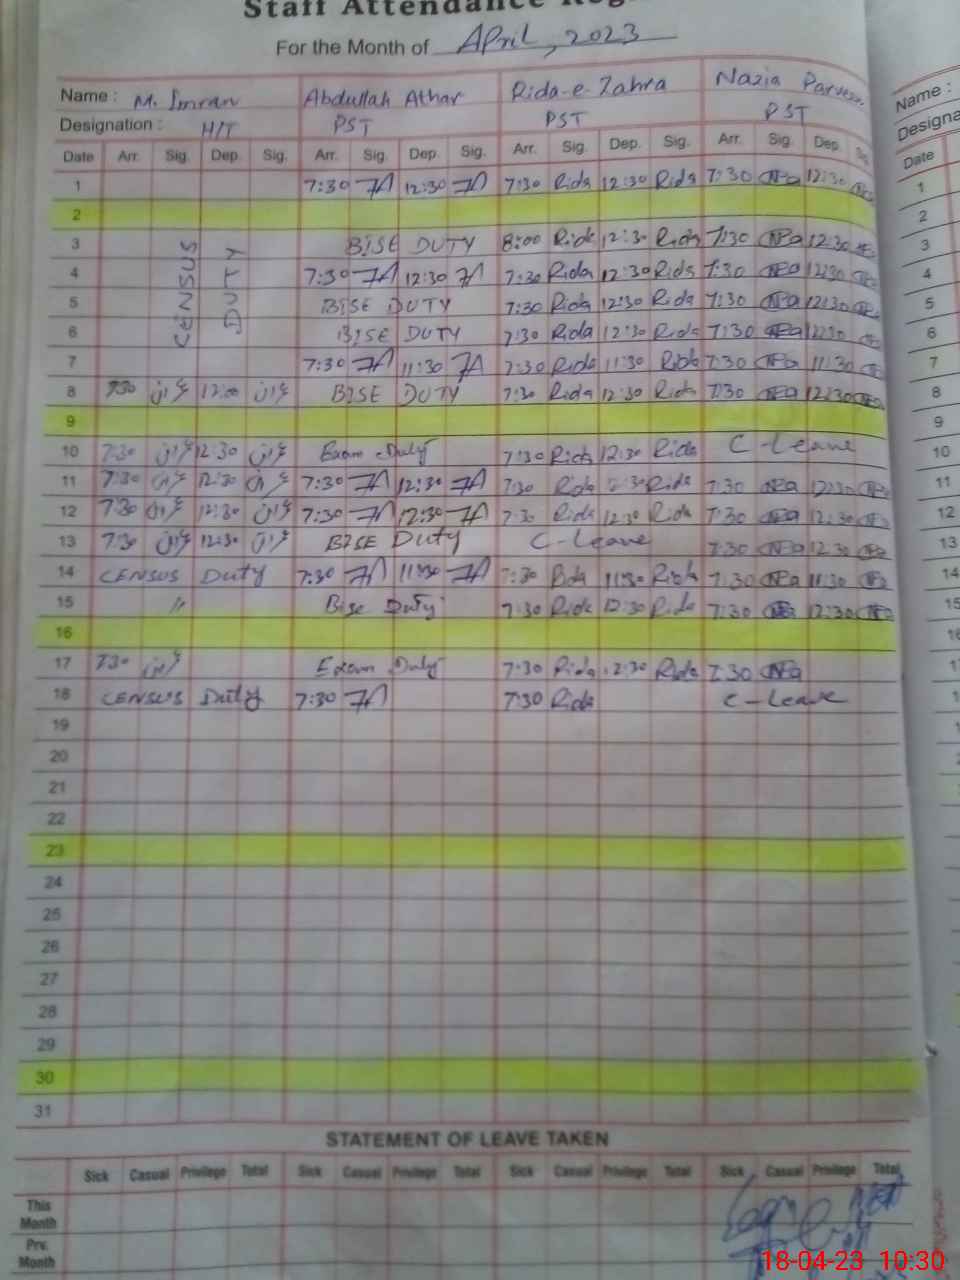 Staff Attendance Reg
For the Month of April, 2023
Name : M. Imran Abdullah Athar Rida-e-Zahra Nazia Parveen
Designation : H/T PST PST PST
Date Arr. Sig. Dep. Sig. Arr. Sig. Dep. Sig. Arr. Sig. Dep. Sig. Arr. Sig. Dep. Sig.
1 7:30 12:30 7:30 Rida 12:30 Rida 7:30 12:30
2
CENSUS DUTY
3 BISE DUTY 8:00 Rida 12:30 Rida 7:30 12:30
4 7:30 12:30 7:30 Rida 12:30 Rida 7:30 12:30
5 BISE DUTY 7:30 Rida 12:30 Rida 7:30 12:30
6 BISE DUTY 7:30 Rida 12:30 Rida 7:30 12:30
7 7:30 11:30 7:30 Rida 11:30 Rida 7:30 11:30
8 7:30 عمران 12:00 عمران BISE DUTY 7:30 Rida 12:30 Rida 7:30 12:30
9
10 7:30 عمران 12:30 عمران Exam Duty 7:30 Rida 12:30 Rida C-Leave
11 7:30 عمران 12:30 عمران 7:30 12:30 7:30 Rida 12:30 Rida 7:30 12:30
12 7:30 عمران 12:30 عمران 7:30 12:30 7:30 Rida 12:30 Rida 7:30 12:30
13 7:30 عمران 12:30 عمران BISE Duty C-Leave 7:30 12:30
14 CENSUS Duty 7:30 11:30 7:30 Rida 11:30 Rida 7:30 11:30
15 〃 Bise Duty 7:30 Rida 12:30 Rida 7:30 12:30
16
17 7:30 عمران Exam Duty 7:30 Rida 12:30 Rida 7:30
18 CENSUS Duty 7:30 7:30 Rida C-Leave
19
20
21
22
23
24
25
26
27
28
29
30
31
STATEMENT OF LEAVE TAKEN
Sick Casual Privilege Total Sick Casual Privilege Total Sick Casual Privilege Total Sick Casual Privilege Total
This Month
Prv. Month
Name :
Designa
Date
1
2
3
4
5
6
7
8
9
10
11
12
13
14
15
16
18-04-23 10:30